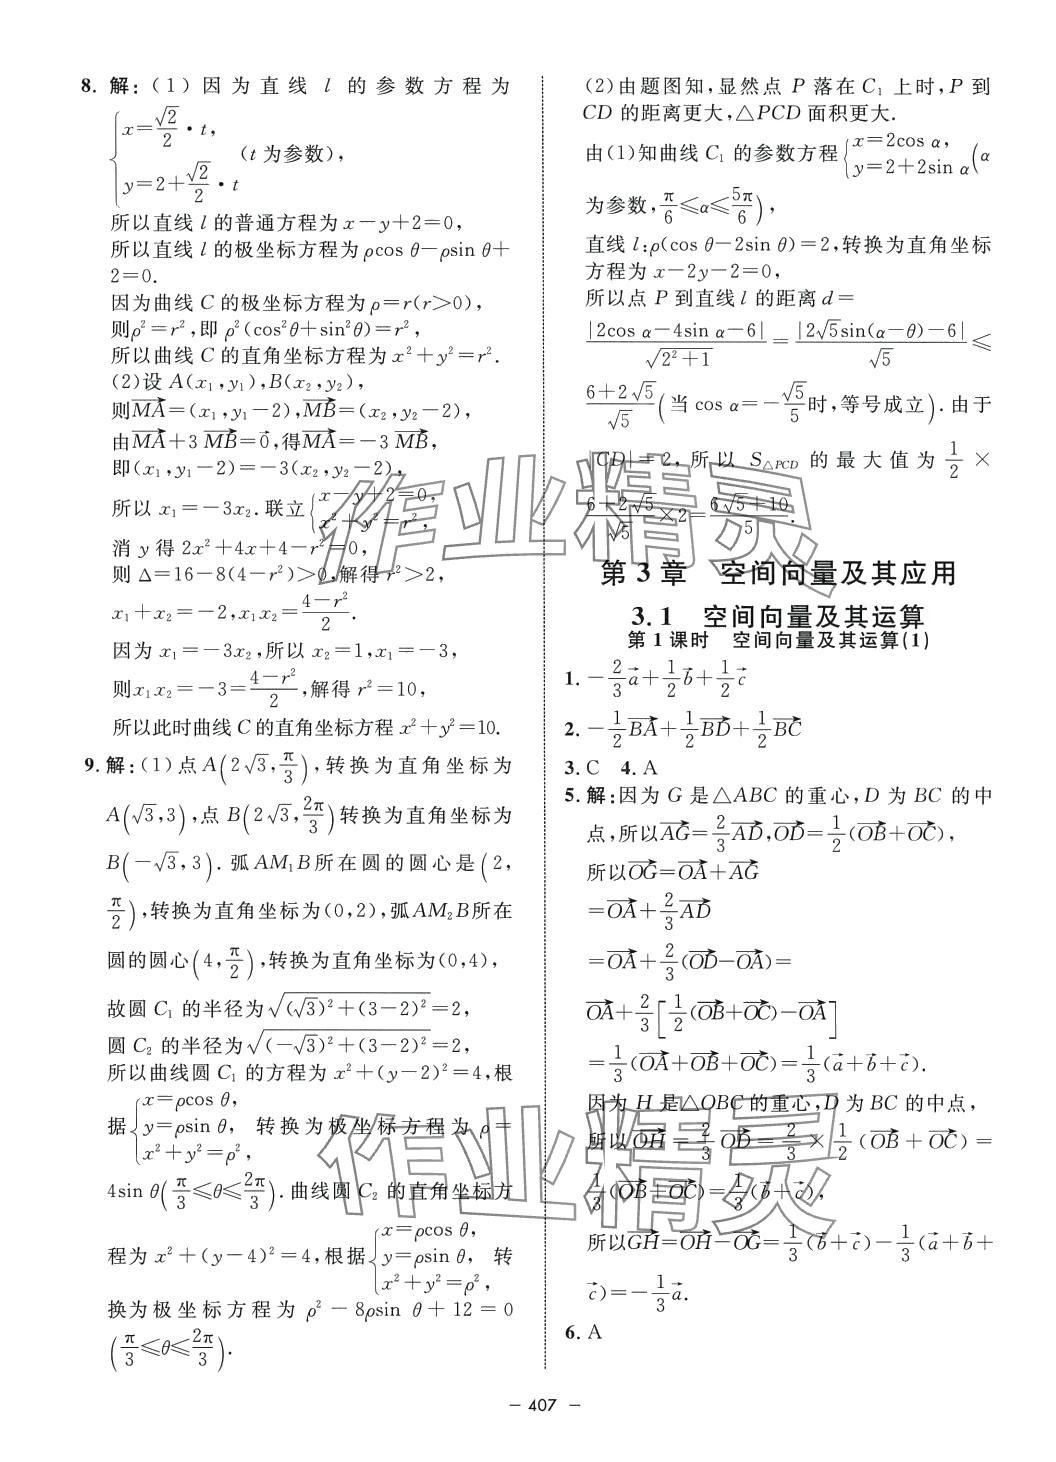 8. 解:(1)因为直线 l 的参数方程为
{x=√2/2·t, y=2+√2/2·t (t 为参数),
所以直线 l 的普通方程为 x－y＋2＝0,
所以直线 l 的极坐标方程为 ρcos θ－ρsin θ＋
2＝0.
因为曲线 C 的极坐标方程为 ρ＝r(r＞0),
则ρ²＝r²,即 ρ²(cos²θ＋sin²θ)＝r²,
所以曲线 C 的直角坐标方程为 x²＋y²＝r².
(2)设 A(x₁,y₁),B(x₂,y₂),
则MA→＝(x₁,y₁－2),MB→＝(x₂,y₂－2),
由MA→＋3 MB→＝0→,得MA→＝－3 MB→,
即(x₁,y₁－2)＝－3(x₂,y₂－2),
所以 x₁＝－3x₂.联立{x－y＋2＝0, x²＋y²＝r²,
消 y 得 2x²＋4x＋4－r²＝0,
则 Δ＝16－8(4－r²)＞0,解得 r²＞2,
x₁＋x₂＝－2,x₁x₂＝(4－r²)/2.
因为 x₁＝－3x₂,所以 x₂＝1,x₁＝－3,
则x₁x₂＝－3＝(4－r²)/2,解得 r²＝10,
所以此时曲线 C 的直角坐标方程 x²＋y²＝10.
9. 解:(1)点 A(2√3,π/3),转换为直角坐标为
A(√3,3),点 B(2√3,2π/3)转换为直角坐标为
B(－√3,3).弧AM₁B所在圆的圆心是(2,
π/2),转换为直角坐标为(0,2),弧AM₂B所在
圆的圆心(4,π/2),转换为直角坐标为(0,4),
故圆 C₁ 的半径为√((√3)²＋(3－2)²)＝2,
圆 C₂ 的半径为√((－√3)²＋(3－2)²)＝2,
所以曲线圆 C₁ 的方程为 x²＋(y－2)²＝4,根
据{x＝ρcos θ, y＝ρsin θ, x²＋y²＝ρ², 转换为极坐标方程为 ρ＝
4sin θ(π/3≤θ≤2π/3).曲线圆 C₂ 的直角坐标方
程为 x²＋(y－4)²＝4,根据{x＝ρcos θ, y＝ρsin θ, x²＋y²＝ρ², 转
换为极坐标方程为 ρ²－8ρsin θ＋12＝0
(π/3≤θ≤2π/3).
(2)由题图知,显然点 P 落在 C₁ 上时,P 到
CD 的距离更大,△PCD 面积更大.
由(1)知曲线 C₁ 的参数方程{x＝2cos α, y＝2＋2sin α(α
为参数,π/6≤α≤5π/6),
直线 l:ρ(cos θ－2sin θ)＝2,转换为直角坐标
方程为 x－2y－2＝0,
所以点 P 到直线 l 的距离 d＝
|2cos α－4sin α－6|/√(2²＋1)＝|2√5sin(α－θ)－6|/√5≤
(6＋2√5)/√5(当 cos α＝－√5/5时,等号成立).由于
|CD|＝2,所以 S△PCD 的最大值为 1/2×
(6－2√5)/√5×2＝(6√5＋10)/5.
第 3 章 空间向量及其应用
3.1 空间向量及其运算
第 1 课时 空间向量及其运算(1)
1. －2/3 a→＋1/2 b→＋1/2 c→
2. －1/2 BA→＋1/2 BD→＋1/2 BC→
3. C 4. A
5. 解:因为 G 是△ABC 的重心,D 为 BC 的中
点,所以AG→＝2/3 AD→,OD→＝1/2(OB→＋OC→),
所以OG→＝OA→＋AG→
＝OA→＋2/3 AD→
＝OA→＋2/3(OD→－OA→)＝
OA→＋2/3[1/2(OB→＋OC→)－OA→]
＝1/3(OA→＋OB→＋OC→)＝1/3(a→＋b→＋c→).
因为 H 是△OBC 的重心,D 为 BC 的中点,
所以OH→＝2/3 OD→＝2/3×1/2(OB→＋OC→)＝
1/3(OB→＋OC→)＝1/3(b→＋c→),
所以GH→＝OH→－OG→＝1/3(b→＋c→)－1/3(a→＋b→＋
c→)＝－1/3 a→.
6. A
作业精灵
作业精灵
－ 407 －